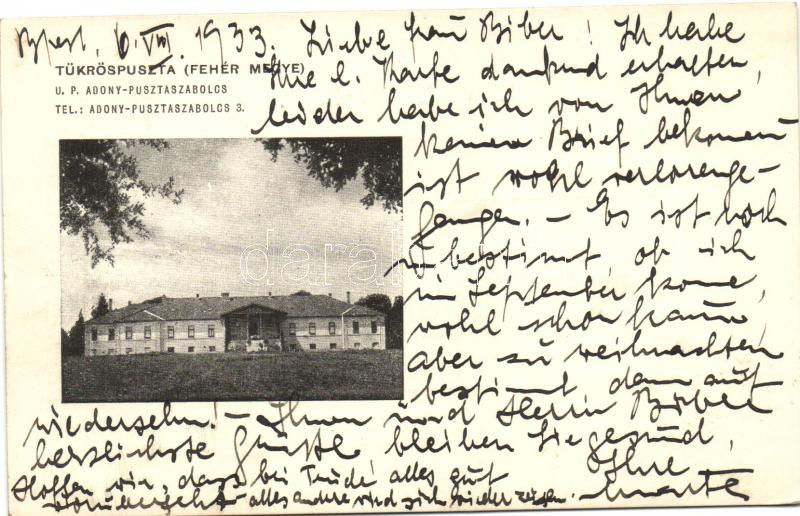 Bpest, 6. VIII. 1933. Liebe Frau Biber! Ich habe
TÜKRÖSPUSZTA (FEHÉR MEGYE)
U. P. ADONY-PUSZTASZABOLCS
TEL.: ADONY-PUSZTASZABOLCS 3.
Ihre l. Karte dankend erhalten,
leider habe ich von Ihnen
keinen Brief bekomen
ist wohl verlorenge-
gangen. – Es ist noch
unbestimt ob ich
im September kome,
wohl schon kaum,
aber zu Weihnachten
bestimt dann auf
wiedersehn! – Ihnen und Herrn Biber
herzlichste Grüsse bleiben Sie gesund,
Hoffen wir, dass bei Trude alles gut
vorübergeht alles andere wird sich wieder zeigen.
Ihre
darabanth